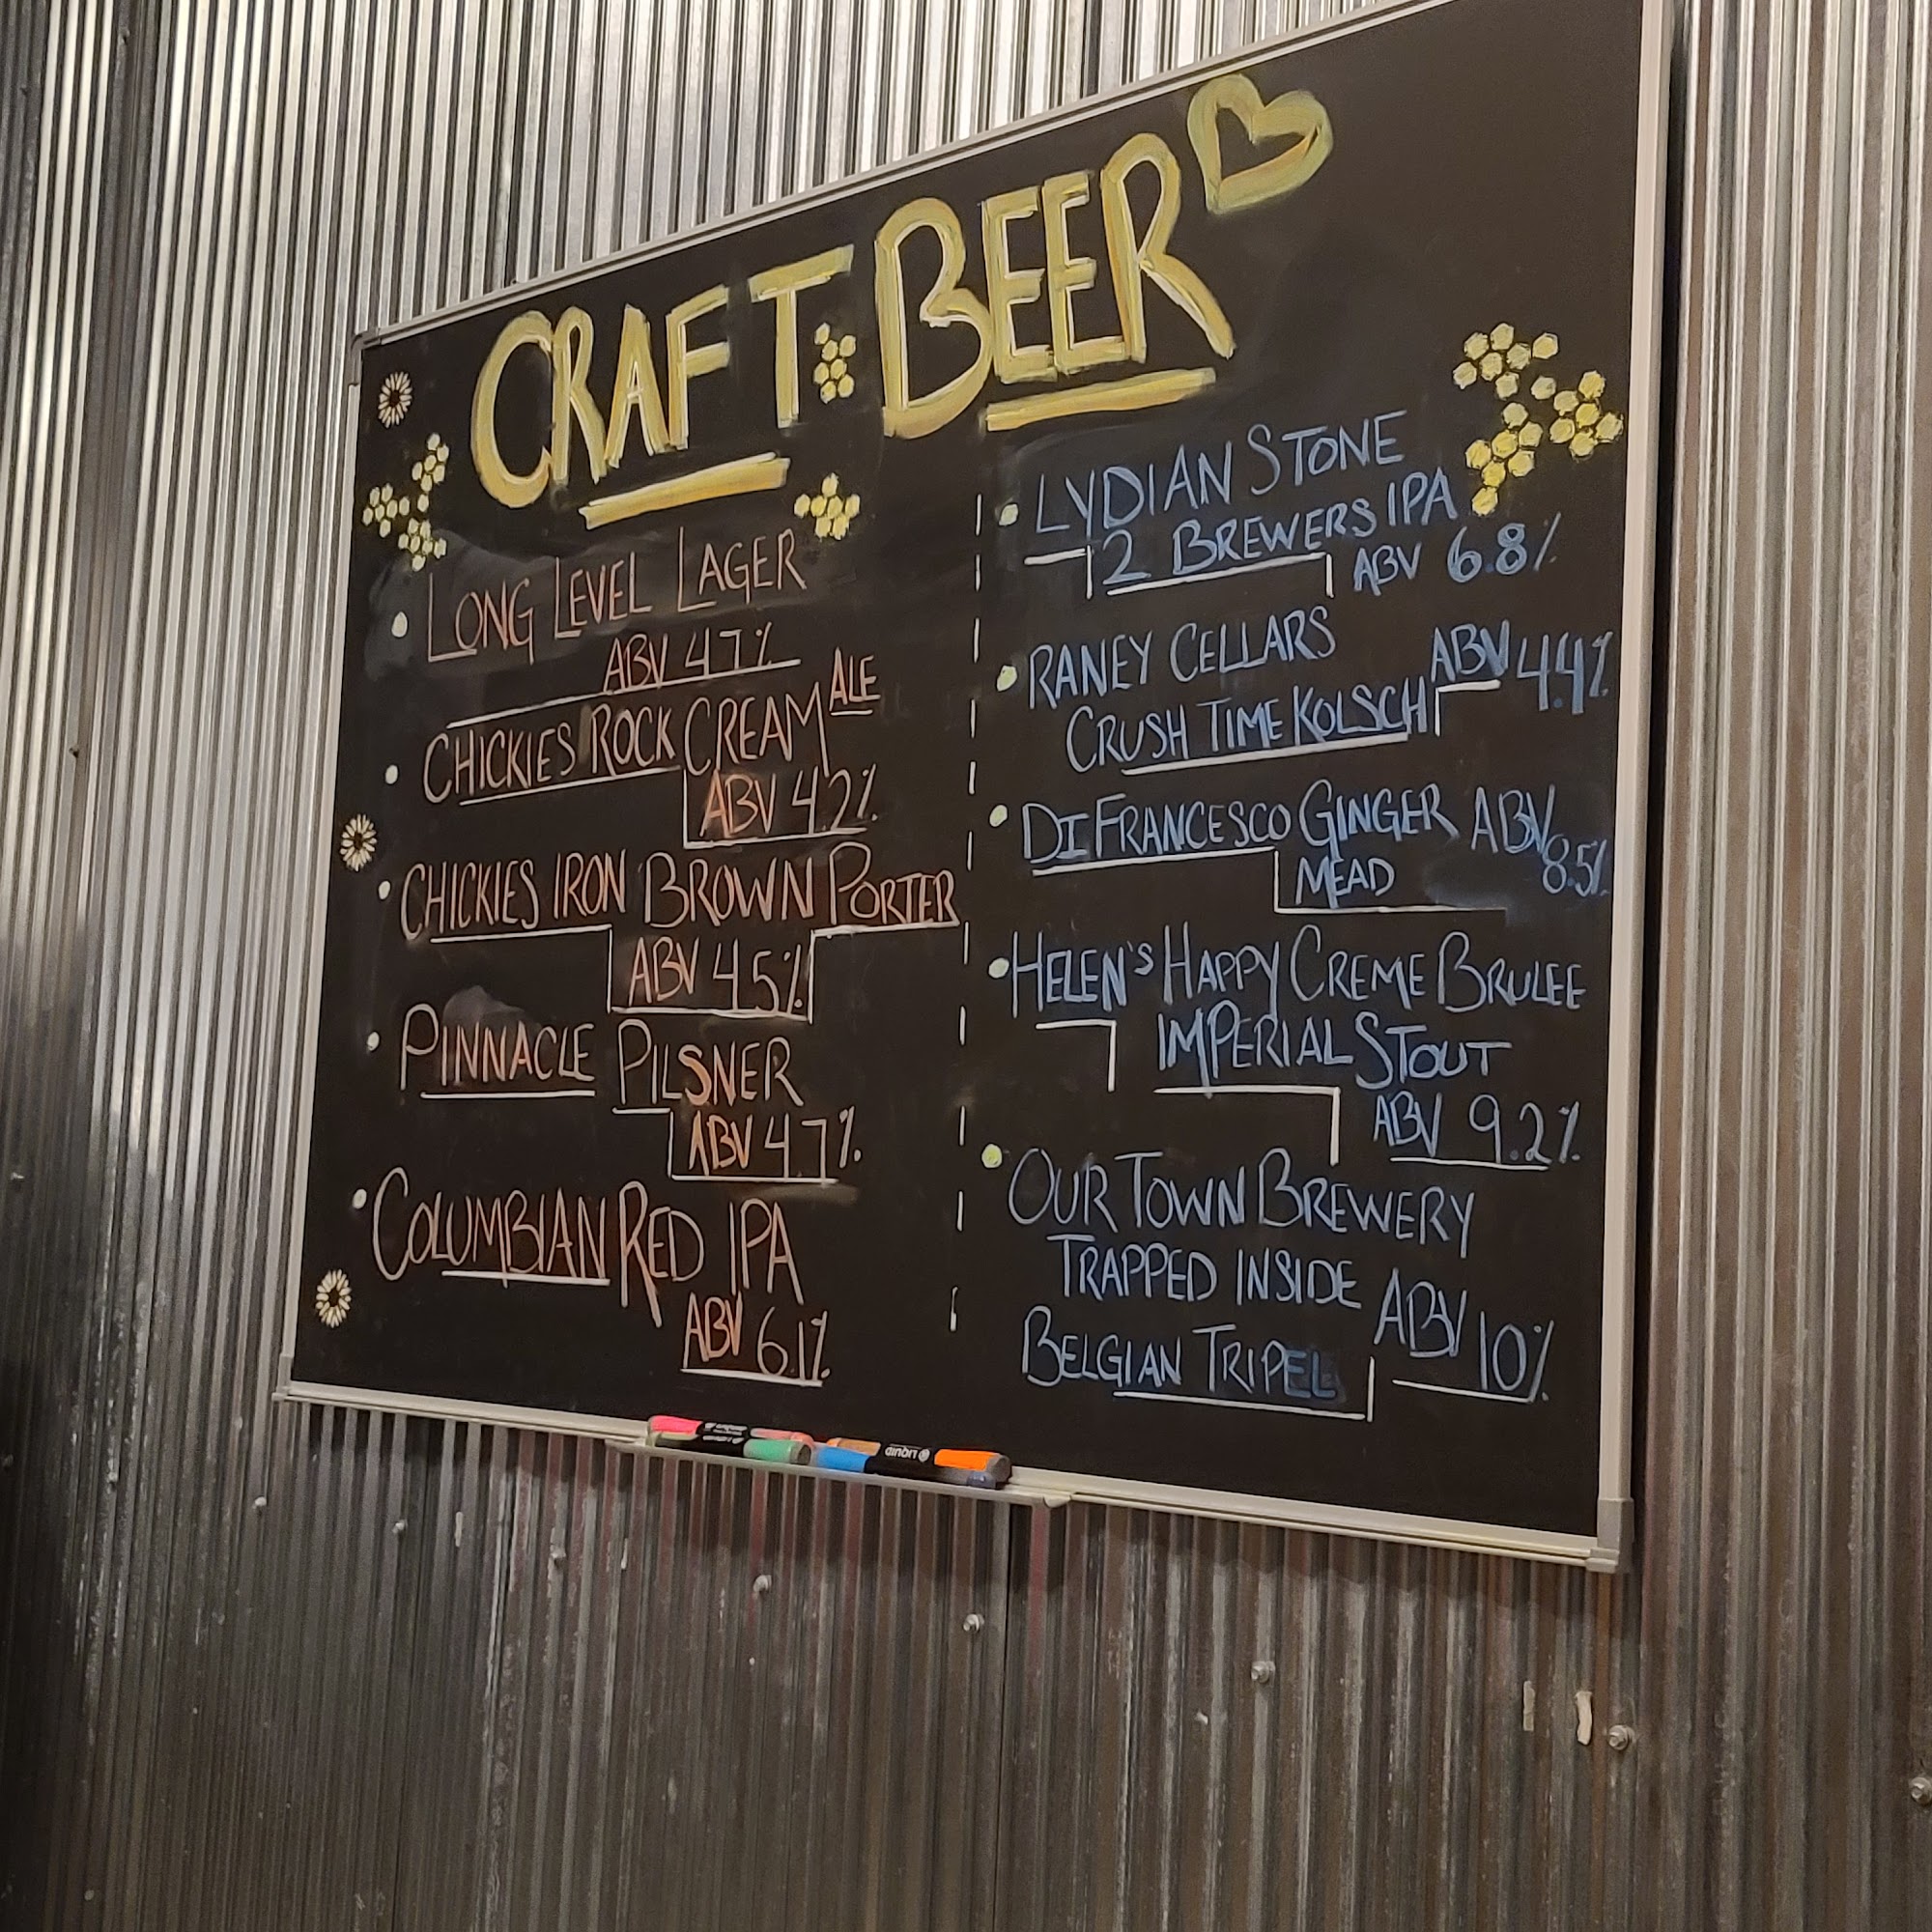 CRAFT BEER
LONG LEVEL LAGER
ABV 4.7%
CHICKIES ROCK CREAM ALE
ABV 4.2%
CHICKIES IRON BROWN PORTER
ABV 4.5%
PINNACLE PILSNER
ABV 4.7%
COLUMBIAN RED IPA
ABV 6.1%
LYDIAN STONE
2 BREWERS IPA
ABV 6.8%
RANEY CELLARS
CRUSH TIME KOLSCH
ABV 4.4%
DI FRANCESCO GINGER
MEAD
ABV 8.5%
HELEN'S HAPPY CREME BRULEE
IMPERIAL STOUT
ABV 9.2%
OUR TOWN BREWERY
TRAPPED INSIDE
BELGIAN TRIPEL
ABV 10%
LIQUID